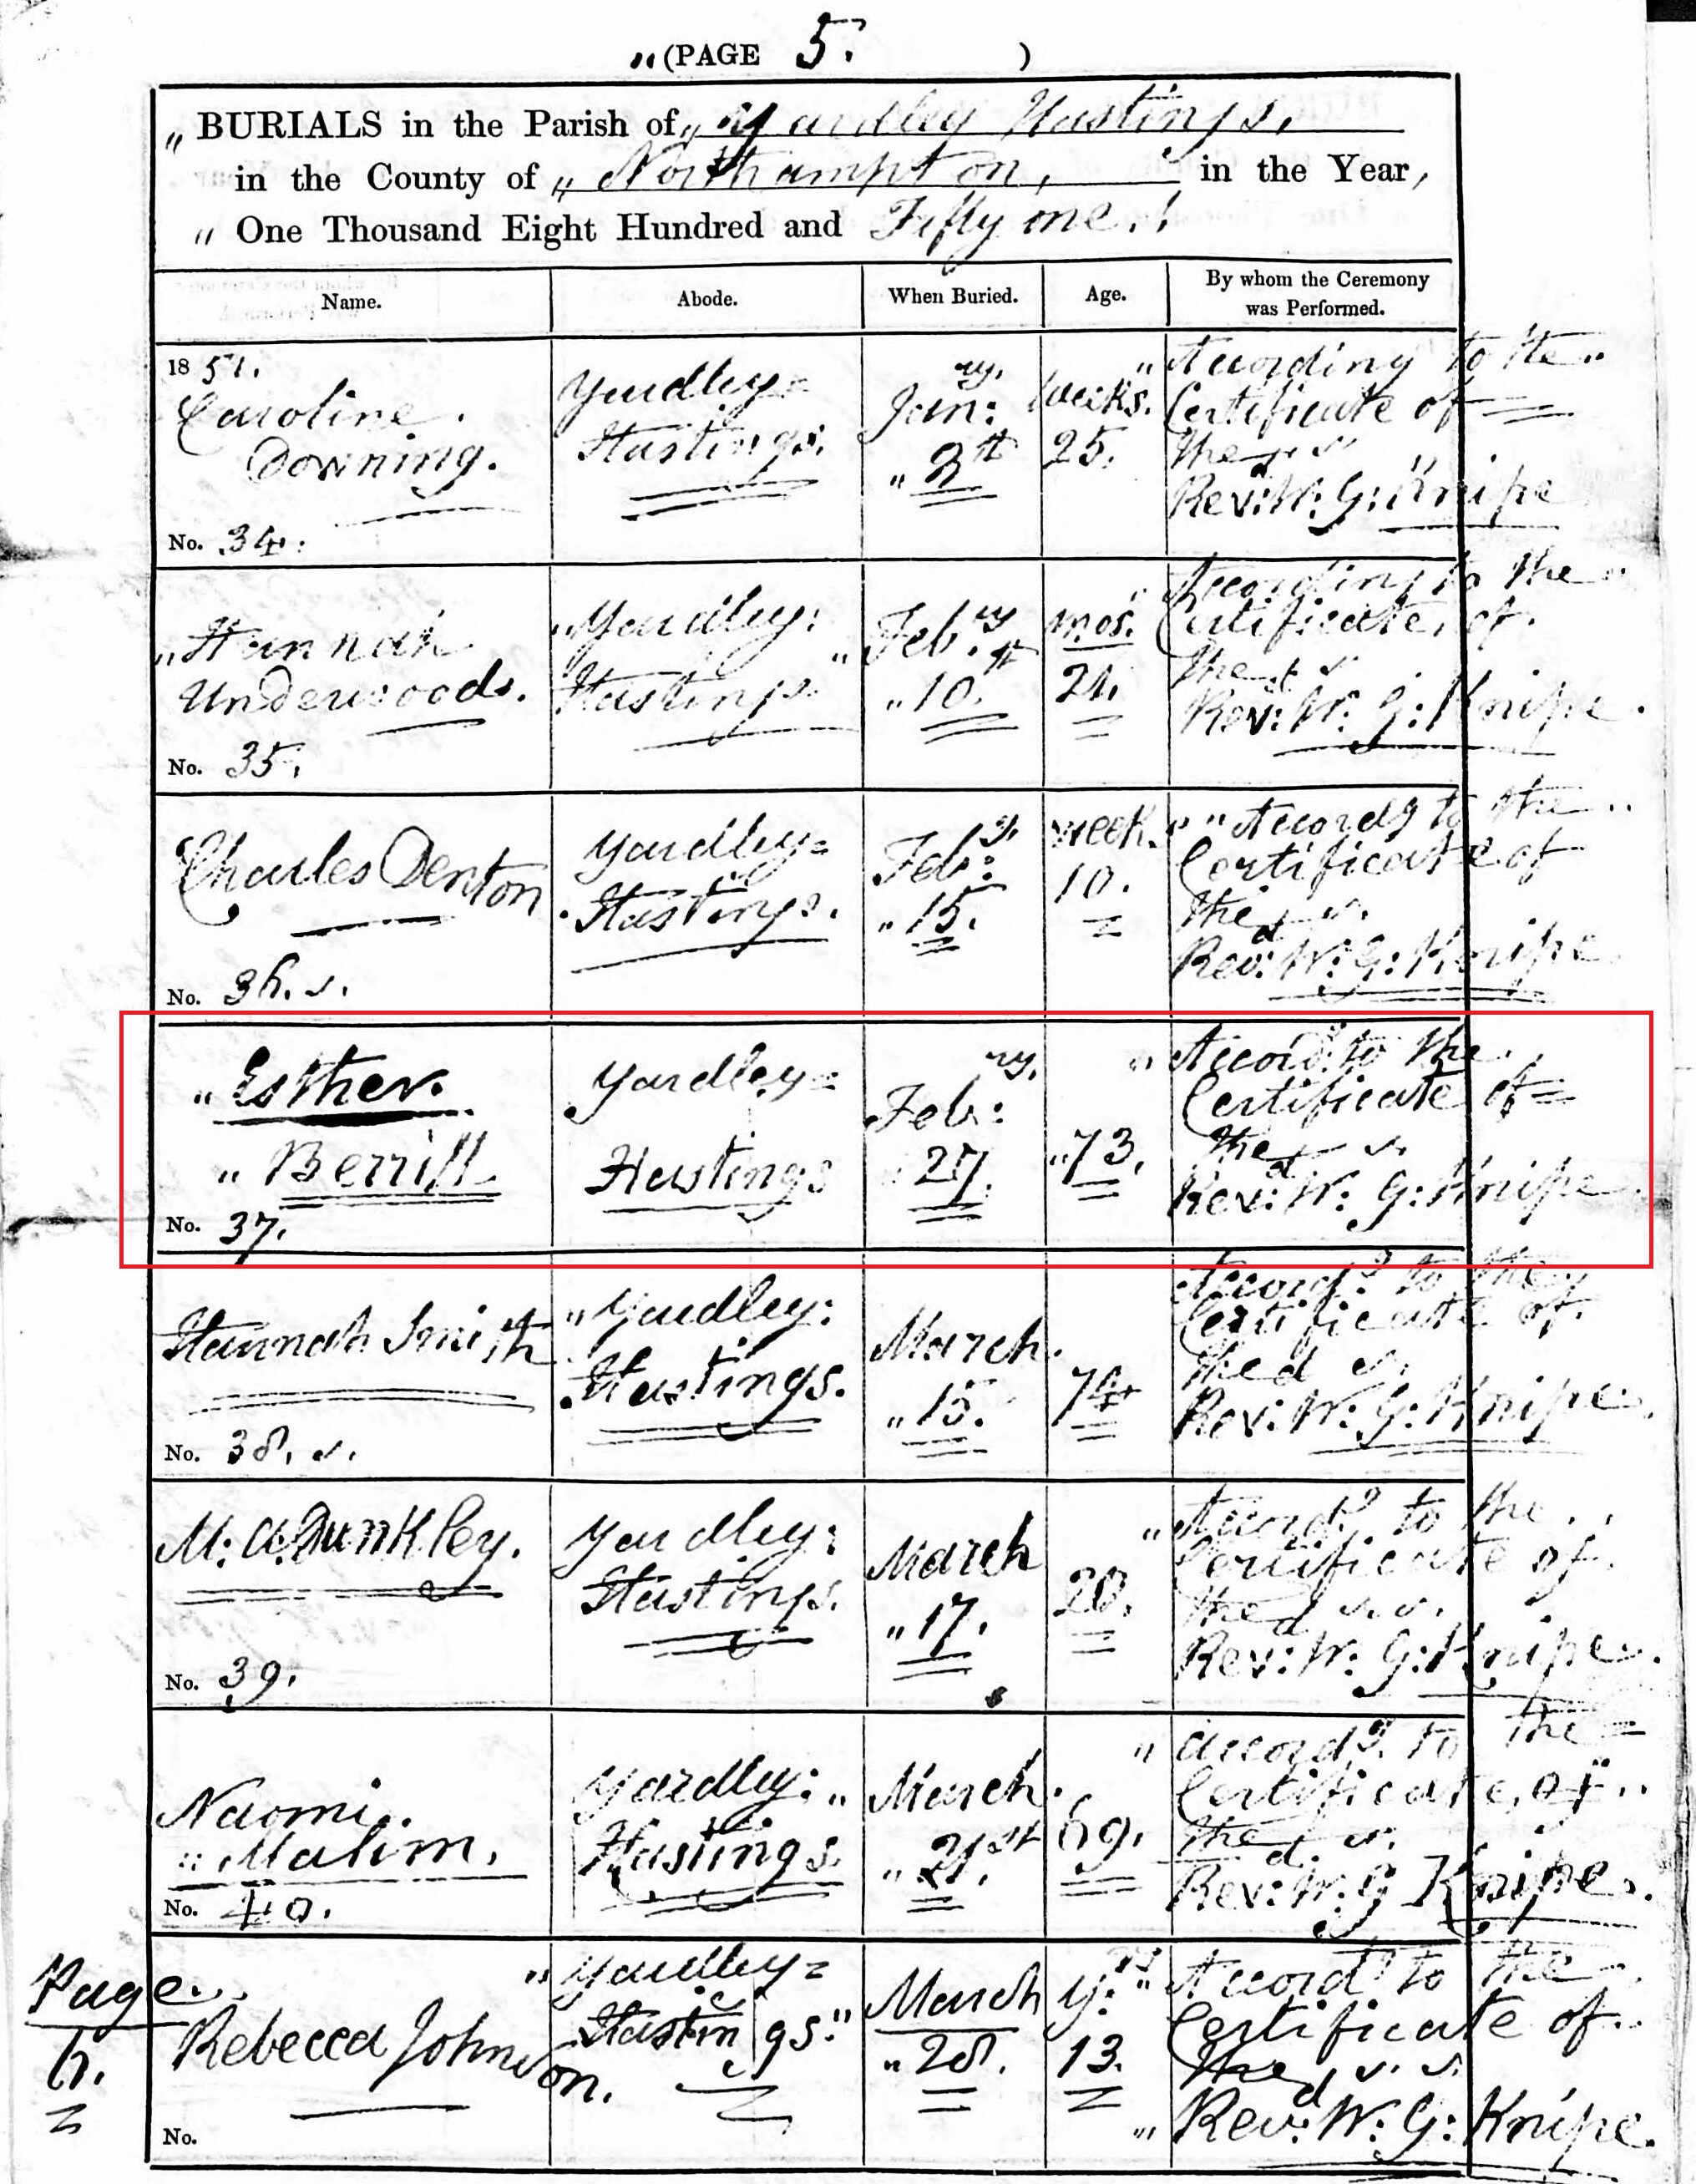 „(PAGE 5. )
„ BURIALS in the Parish of „ Yardley Hastings.
in the County of „ Northampton, in the Year,
„ One Thousand Eight Hundred and Fifty one.!
Name. Abode. When Buried. Age. By whom the Ceremony was Performed.
1851.
Caroline.
Downing.
No. 34.
Yardley=
Hastings.
Jan:ry.
„
Weeks.
25.
„According to the„
Certificate of =
the
Revd: W: G: Knipe
„Hannah
Underwood.
No. 35.
„Yardley:
Hastings
„Feb.ry
„10.
mos.
21.
According to the „
Certificate, of.
the
Revd: W: G: Knipe.
Charles Denton
No. 36.
Yardley=
Hastings.
Feb:y.
„15.
week.s
10.
„Accordg to the „
Certificate of
the
Revd: W: G: Knipe
„Esther.
„Berrill
No. 37.
Yardley=
Hastings
Feb:ry.
27.
„73.
„Accord: to the.
Certificate of =
the
Revd: W: G: Knipe
Hannah Smith
No. 38.
„Yardley:
Hastings.
March.
„15.
74
Accordg to the
Certificate of.
the
Revd: W: G: Knipe.
M: A: Dunkley.
No. 39.
Yardley:
Hastings.
March
„17.
20.
„Accordg to the.
Certificate of.
the
Revd: W: G: Knipe.
Naomi.
„Malim.
No. 40.
Yardley:„
Hastings.
March.
„21.st
69.
„accordg. to the =
Certificate, of„
the
Revd: W: G Knipe.
Page.
6.
Rebecca Johnson.
No.
„Yardley=
Hastings.„
March
„28.
y:rs
13.
„Accordg to the
Certificate of.
the
„Revd: W: G: Knipe.